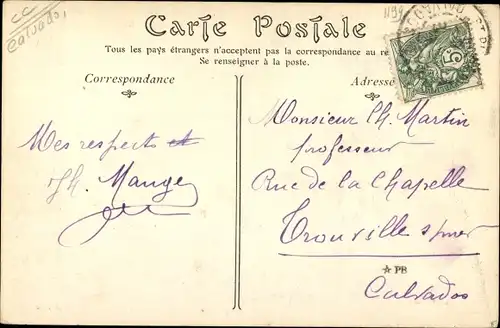 CC
Calvados
1199
Carte Postale
Tous les pays étrangers n'acceptent pas la correspondance au re
Se renseigner à la poste.
Correspondance
Adresse
5
Mes respects et
Jh Mange
Monsieur Ch. Martin
professeur
Rue de la Chapelle
Trouville s/mer
PB
Calvados